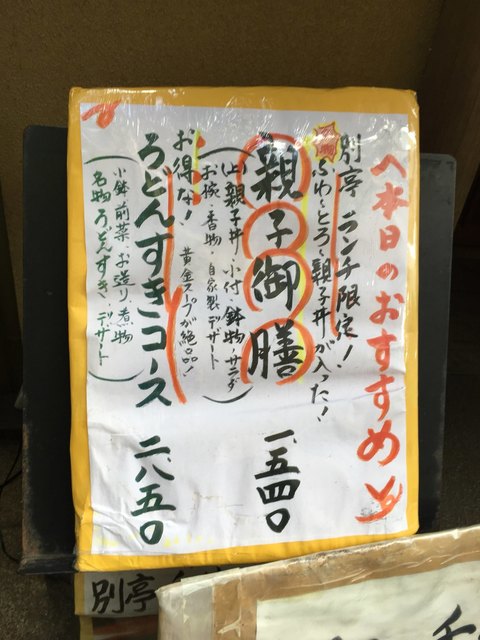 本日のおすすめ
別亭 ランチ限定!
名物
ふわとろ親子丼が入った!
親子御膳 一、五四〇
(上)親子丼・小付・鉢物・サラダ
お椀・香物・自家製デザート)
お得な! 黄金スープが絶品!
うどんすきコース 二、八五〇
(小鉢・前菜・お造り・煮物
名物うどんすき デザート)
別亭